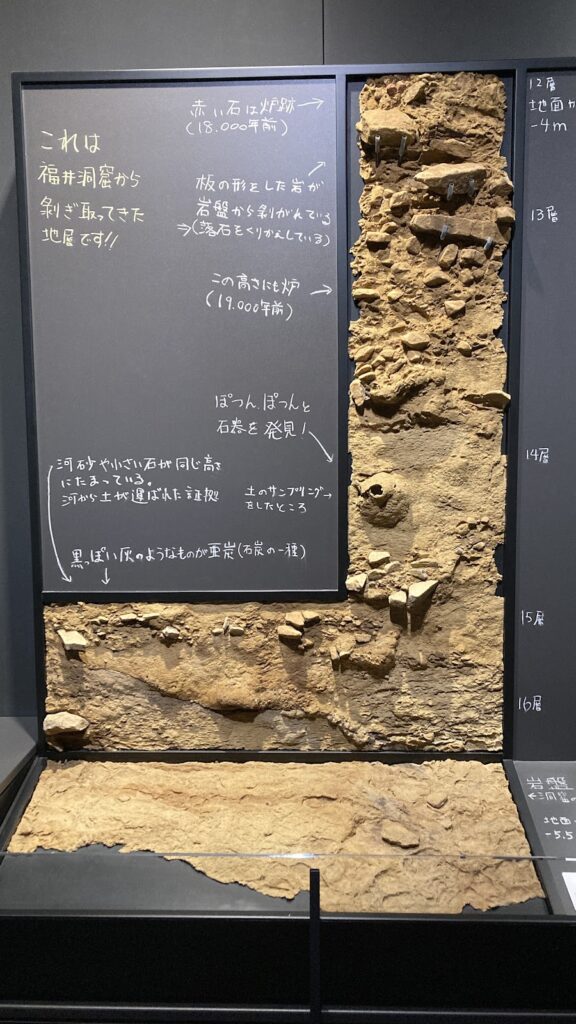 これは
福井洞窟から
剥ぎ取ってきた
地層です!!
赤い石は炉跡→
(18.000年前)
板の形をした岩が
岩盤から剥がれている
⇒(落石をくりかえしている)
この高さにも炉
(19.000年前)
ぽつん、ぽつんと
石器を発見!
河砂や小さい石が同じ高さ
にたまっている。
河から土が運ばれた証拠
土のサンプリング→
をしたところ
黒っぽい灰のようなものが亜炭(石炭の一種)
12層
地面か
-4m
13層
14層
15層
16層
岩盤
←洞窟の
地面
-5.5